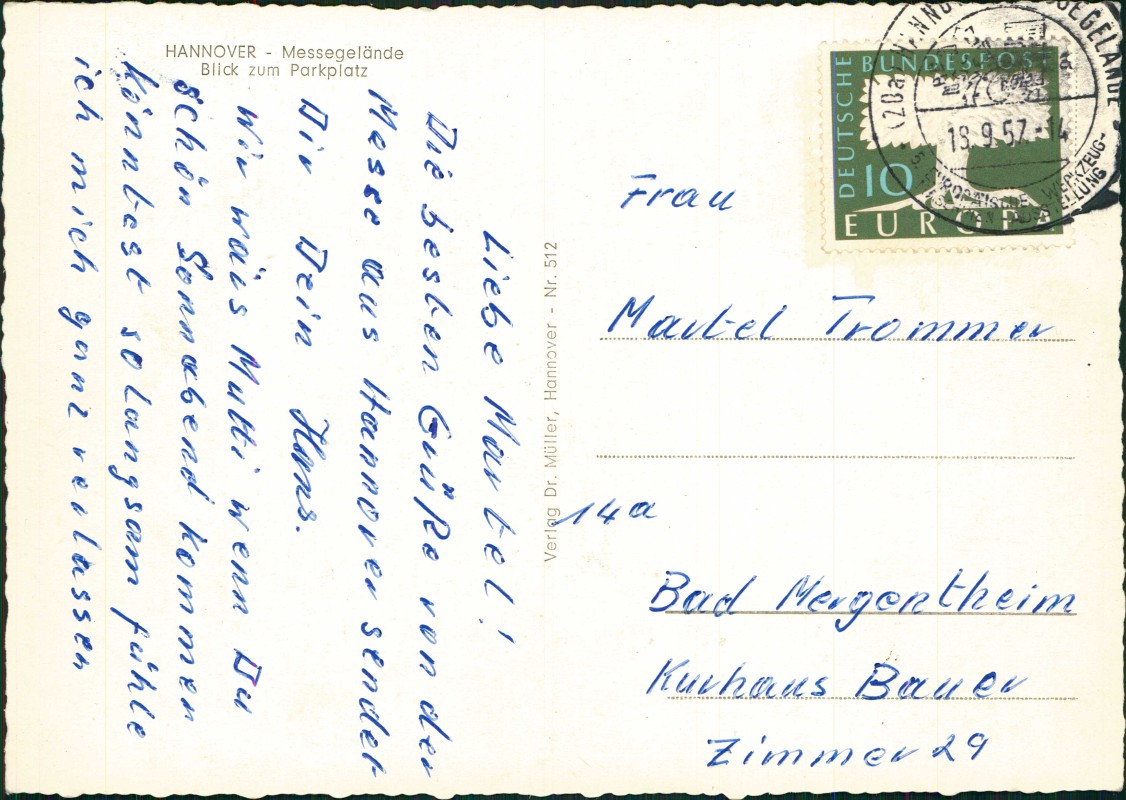 HANNOVER - Messegelände
Blick zum Parkplatz
Liebe Martel!
Die besten Grüße von der
Messe aus Hannover sendet
Dir Dein Hans.
Wir wärs Mutti wenn Du
schön Sonnabend kommen
könntest solangsam fühle
ich mich ganz verlassen
Verlag Dr. Müller, Hannover - Nr. 512
DEUTSCHE BUNDESPOST
10
EUROPA
18.9.57.-14
EUROPÄISCHE WERKZEUG-
Frau
Martel Trommer
14a
Bad Mergentheim
Kurhaus Bauer
Zimmer 29